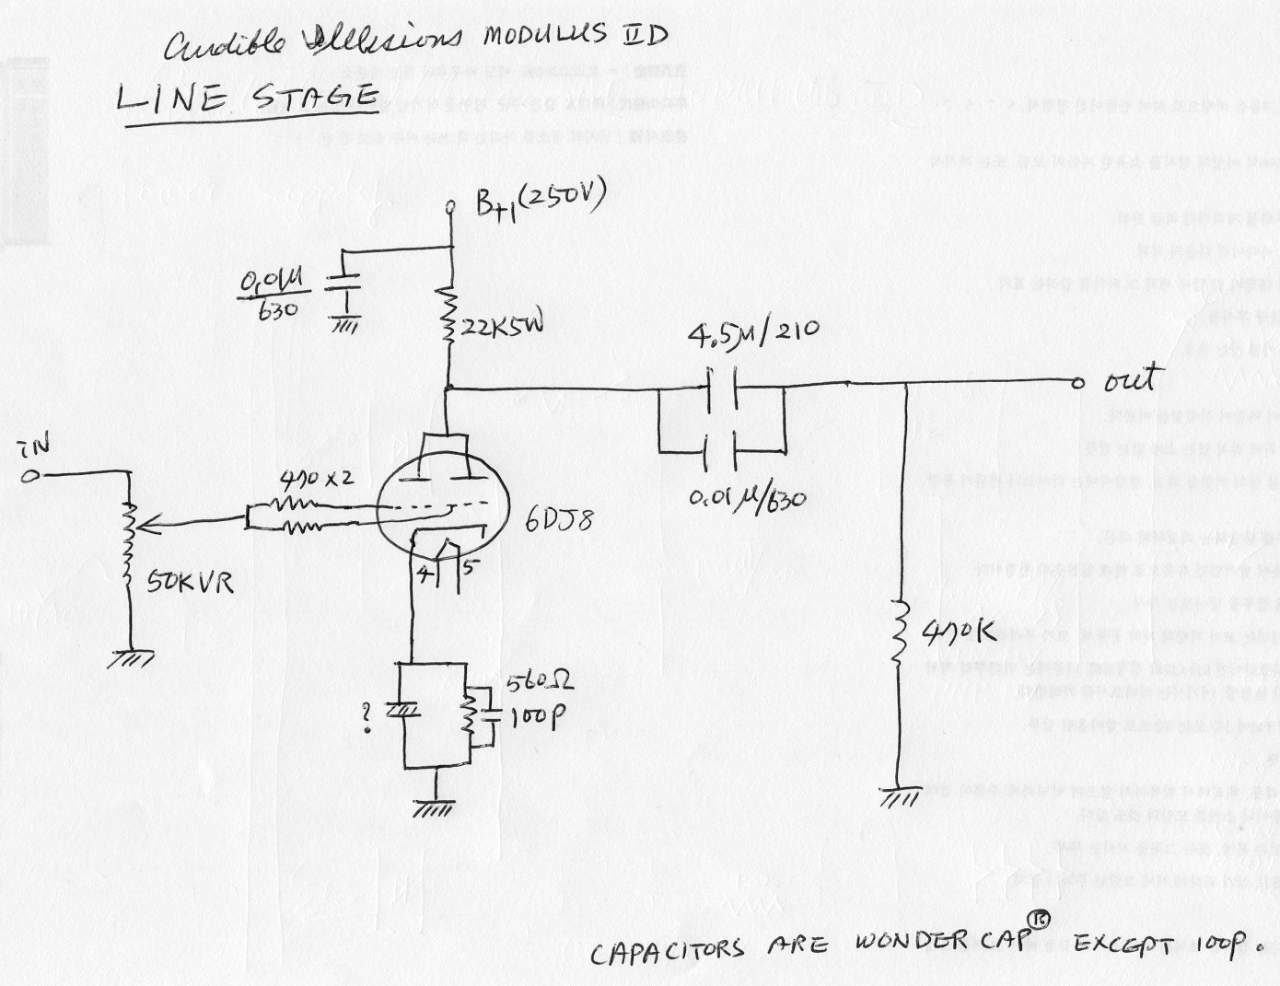 Audible Illusions MODULUS IID
LINE STAGE
B+1 (250V)
0.01µ/630
22K5W
4.5µ/210
out
0.01µ/630
IN
470 x 2
6DJ8
50KVR
4 5
560Ω
100P
?
470K
CAPACITORS ARE WONDER CAP® EXCEPT 100P.